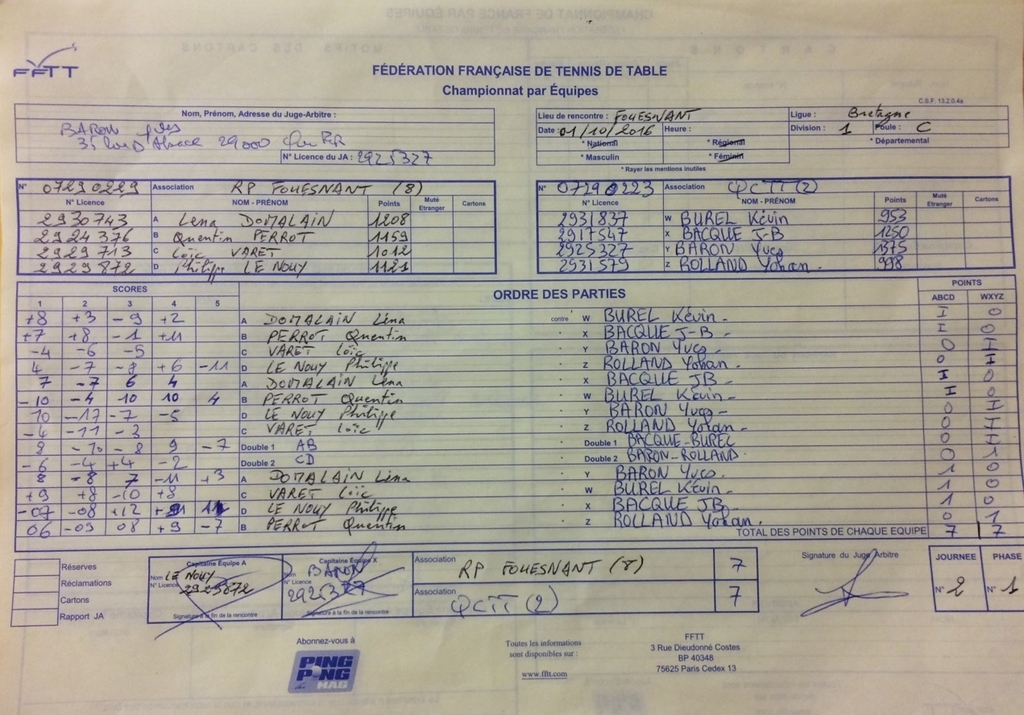 FFTT
FÉDÉRATION FRANÇAISE DE TENNIS DE TABLE
Championnat par Équipes
C.S.F. 13.2.0.4a
Nom, Prénom, Adresse du Juge-Arbitre :
BARON Yves
29000
N° Licence du JA : 2925327
Lieu de rencontre : FOUESNANT
Ligue : Bretagne
Date : 01/10/2016 Heure :
Division : 1 Poule : C
* National * Régional * Départemental
* Masculin * Féminin
* Rayer les mentions inutiles
N° 07290229 Association RP FOUESNANT (8)
N° Licence NOM - PRÉNOM Points Muté Etranger Cartons
2930743 A Léna DOMALAIN 1208
2924376 B Quentin PERROT 1159
2929713 C Loïc VARET 1012
2929872 D Philippe LE NOUY 1121
N° 07290223 Association QCTT (2)
N° Licence NOM - PRÉNOM Points Muté Etranger Cartons
2931837 W BUREL Kévin 953
2917547 X BACQUE J-B 1250
2925327 Y BARON Yves 1375
2931579 Z ROLLAND Yohan. 998
SCORES ORDRE DES PARTIES POINTS
1 2 3 4 5 ABCD WXYZ
+8 +3 -9 +2 A DOMALAIN Léna contre W BUREL Kévin - I 0
+7 +8 -1 +11 B PERROT Quentin X BACQUE J-B - I 0
-4 -6 -5 C VARET Loïc Y BARON Yves - 0 I
4 -7 -8 +6 -11 D LE NOUY Philippe Z ROLLAND Yohan - 0 I
7 -7 6 4 A DOMALAIN Léna X BACQUE JB - I 0
-10 -4 10 10 4 B PERROT Quentin W BUREL Kévin - I 0
10 -12 -7 -5 D LE NOUY Philippe Y BARON Yves - 0 I
-4 -11 -3 C VARET Loïc Z ROLLAND Yohan - 0 I
9 -10 -8 9 -7 Double 1 AB Double 1 BACQUE-BUREL 0 I
-6 -4 +4 -2 Double 2 CD Double 2 BARON-ROLLAND 0 1
8 -8 7 -11 +3 A DOMALAIN Léna Y BARON Yves - 1 0
+9 +8 -10 +8 C VARET Loïc W BUREL Kévin - 1 0
-07 -08 +12 D LE NOUY Philippe X BACQUE JB - 1 0
06 -09 08 +9 -7 B PERROT Quentin Z ROLLAND Yohan. 0 1
TOTAL DES POINTS DE CHAQUE EQUIPE 7 7
Réserves
Réclamations
Cartons
Rapport JA
Capitaine Equipe A
Nom LE NOUY
N° Licence 2929872
Signature à la fin de la rencontre
Capitaine Equipe X
Nom BARON
N° Licence 2925327
Signature à la fin de la rencontre
Association RP FOUESNANT (8) 7
Association QCTT (2) 7
Signature du Juge Arbitre
JOURNEE PHASE
N° 2 N° 1
Abonnez-vous à
PING PONG MAG
Toutes les informations
sont disponibles sur :
www.fftt.com
FFTT
3 Rue Dieudonné Costes
BP 40348
75625 Paris Cedex 13